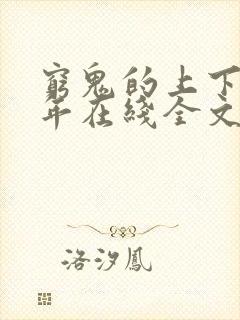 窮鬼的上下
年在綫全文
洛汐鳳